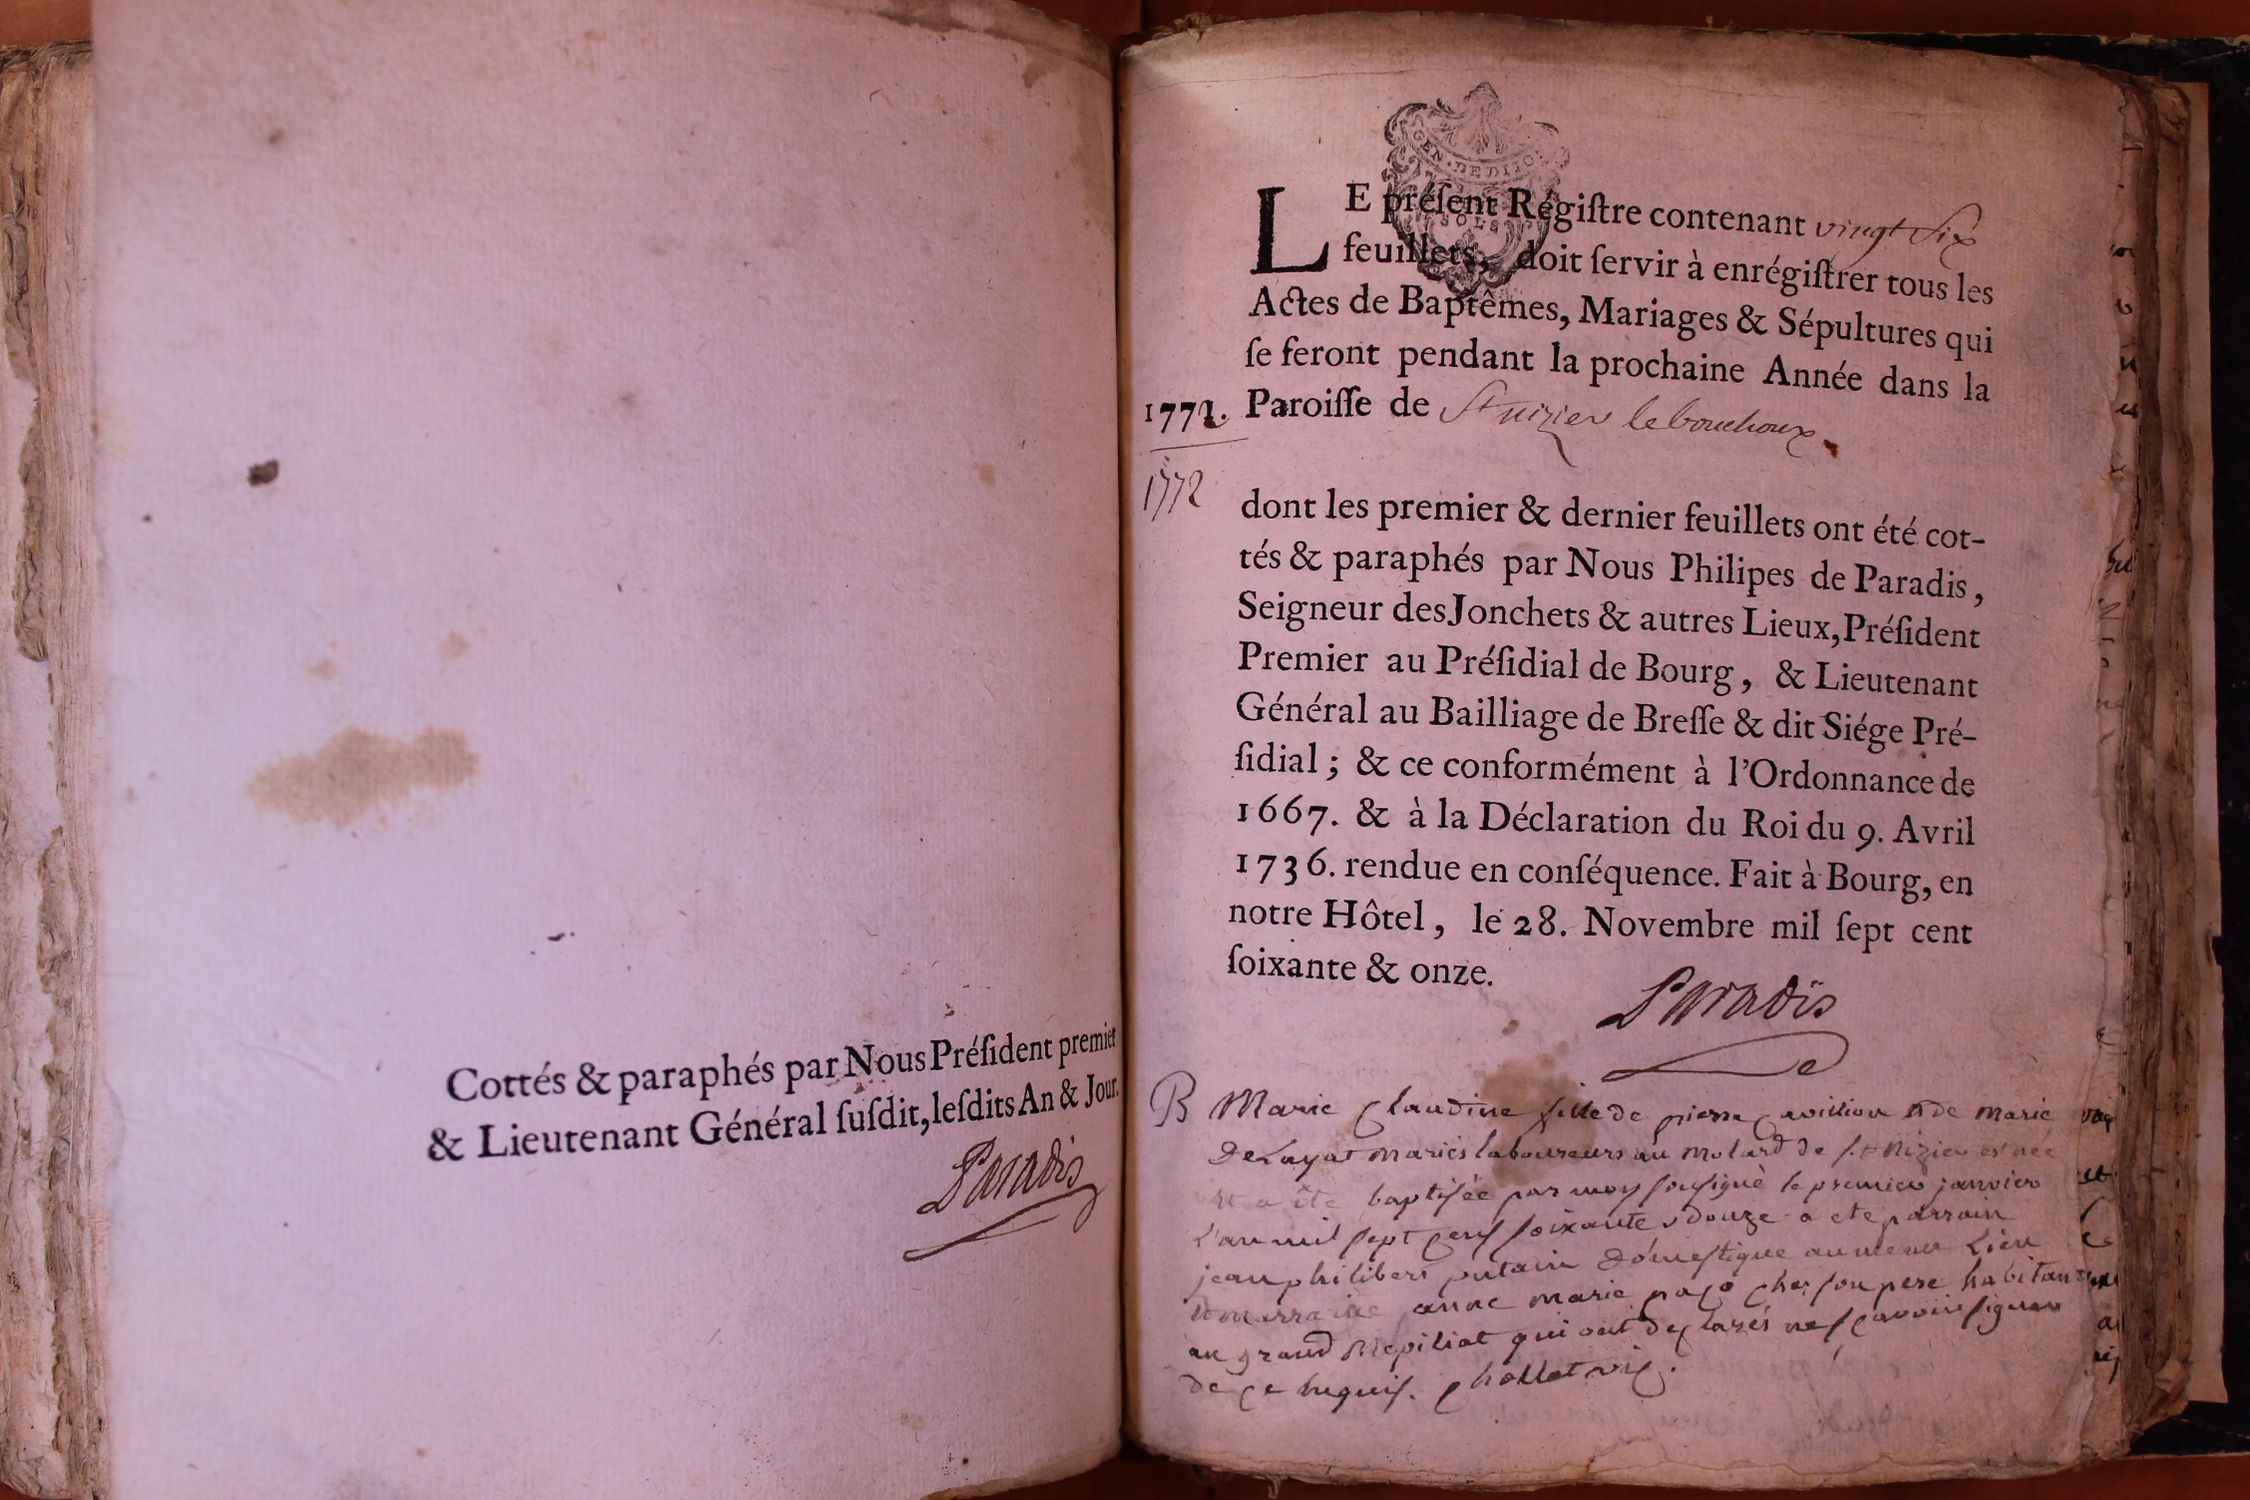 Cottés & paraphés par Nous Préſident premier
& Lieutenant Général ſuſdit, leſdits An & Jour.
Paradis
GEN. DE DIJO
SOLS
LE préſent Régiſtre contenant vingt six
feuillets, doit ſervir à enrégiſtrer tous les
Actes de Baptêmes, Mariages & Sépultures qui
ſe feront pendant la prochaine Année dans la
1772. Paroiſſe de St nizier le bouchoux
1772
dont les premier & dernier feuillets ont été cot-
tés & paraphés par Nous Philipes de Paradis,
Seigneur des Jonchets & autres Lieux, Préſident
Premier au Préſidial de Bourg, & Lieutenant
Général au Bailliage de Breſſe & dit Siége Pré-
ſidial; & ce conformément à l'Ordonnance de
1667. & à la Déclaration du Roi du 9. Avril
1736. rendue en conſéquence. Fait à Bourg, en
notre Hôtel, le 28. Novembre mil ſept cent
ſoixante & onze.
Paradis
B Marie Claudine fille de pierre cavillion et de marie
Delayat mariés laboureurs au molard de st Nizier est née
et a été baptisée par moy sousigné le premier janvier
l'an mil sept cens soixante et douze a ete parrain
jean philibert putain domestique au meme Lieu
et marraine anne marie chez son pere habitant
au grand qui ont declarés ne scavoir signer
de ce enquis. chollet vic.